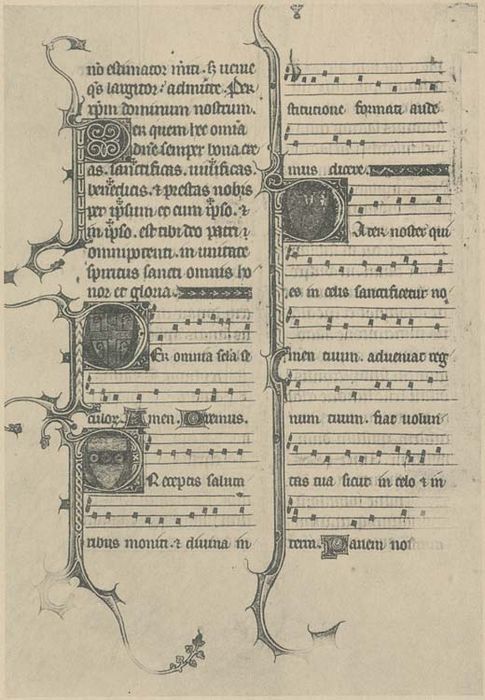 no estimator initi. ß uenie
qs largitor admitte. Per
xpm dominum nostrum.
Per quem hec omia
dne semper bona cre
as. sanctificas. uiuificas.
benedicis. & prestas nobis
per ipsum et cum ipso. &
in ipso. est tibi deo patri
omnipotenti. in unitate
spiritus sancti omnis ho
nor et gloria.
Per omnia scla se
culor. Amen. Oremus.
Preceptis saluta
ribus moniti. & diuina in
stitucione formati aude
mus dicere.
Pater noster qui
es in celis sanctificetur no
men tuum. adueniat reg
num tuum. fiat uolun
tas tua sicut in celo & in
terra. Panem nos